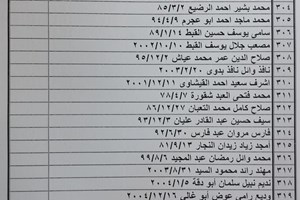 ٣٠٤ محمد بشير احمد الرضيع ٨٥/٣/٢
٣٠٥ محمد ماجد احمد ابو عجرم ٩٤/٤/٩
٣٠٦ سامي يوسف حسين القبط ٨٩/١/١٤
٣٠٧ مصعب جلال يوسف القبط ٢٠٠٢/١٠/١٠
٣٠٨ صلاح الدين عمر محمد عياش ٩٥/١٢/٢
٣٠٩ نافذ وائل نافذ بدوى ٢٠٠٣/٢/٢٠
٣١٠ اشرف سعيد احمد القيشاوى ٢٠٠١/١٢/١١
٣١١ محمد فتحى العبد شقورة ٧٨/٤/٧
٣١٢ صلاح كامل محمد التعبان ٨٦/١٢/٢٧
٣١٣ سيف حسين عبد القادر عليان ٩٣/١٢/٣
٣١٤ فارس مروان عبد فارس ٩٢/٦/٣٠
٣١٥ أمجد زياد زيدان النجار ٨١/٩/١٣
٣١٦ محمد وائل رمضان عبد المجيد ٩٩/٨/٦
٣١٧ مهند رائد محمود السيد ٢٠٠٣/٨/٣١
٣١٨ نديم نبيل سلمان أبو دقة ٢٠٠٤/١/٥
٣١٩ وديع رامى عوض أبو غالى ٢٠٠٤/١٢/١٦